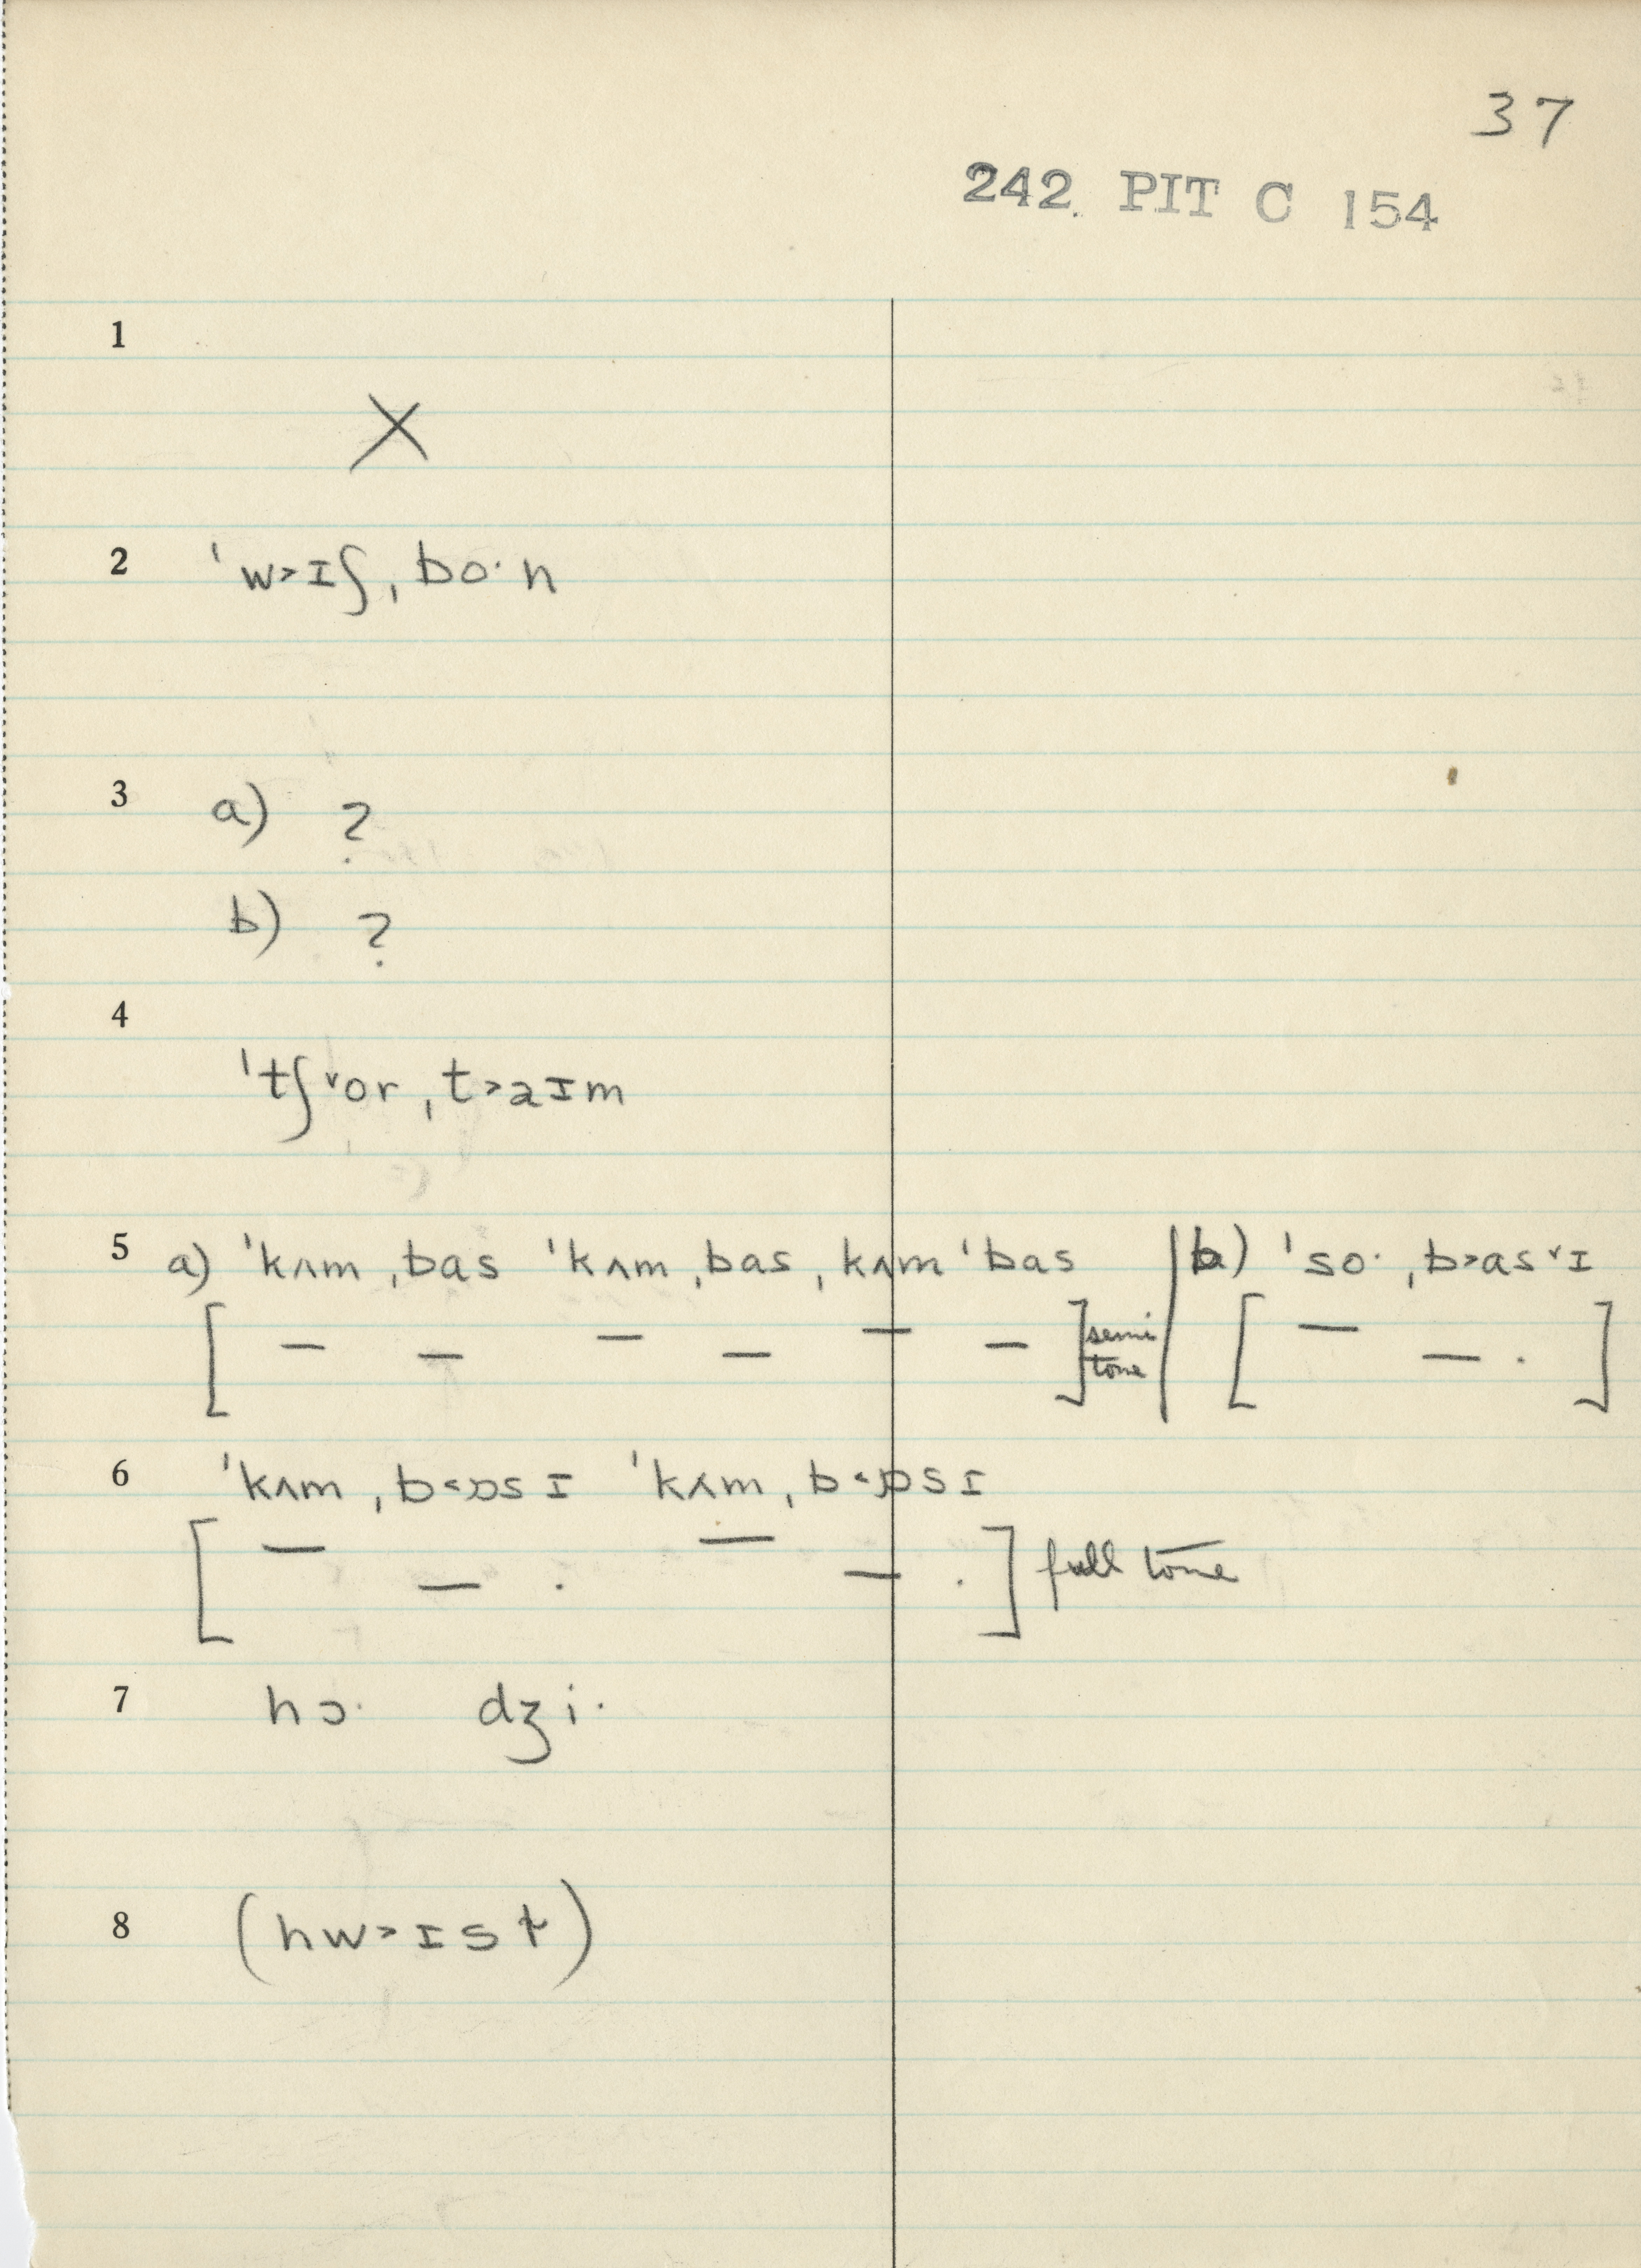 37
242. PIT C 154
1
X
2 ˈw˃ɪʃˌboˑn
3 a) ?
b) ?
4
ˈtʃ˅orˌt˃aɪm
5 a) ˈkʌmˌbas ˈkʌmˌbasˌkʌmˈbas | b) ˈsoˑˌb˃as˅ɪ
[ – – – – – – ] semi tone [ – – · ]
6 ˈkʌmˌb˂ɒsɪ ˈkʌmˌb˂ɒsɪ
[ – – · – – · ] full tone
7 hɔˑ dʒiˑ
8 (hw˃ɪst)